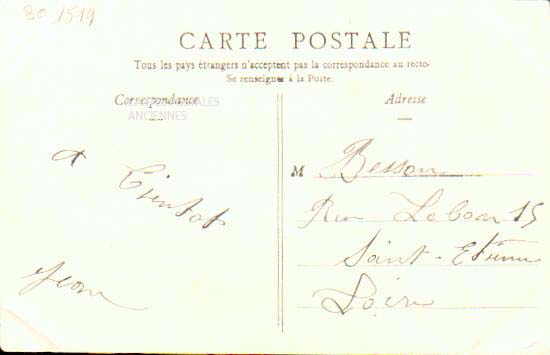 30/1519
CARTE POSTALE
Tous les pays étrangers n'acceptent pas la correspondance au recto-
Se renseigner à la Poste.
Correspondance
ANCIENNES
a
Bientot
Jean
Adresse
M Besson
Rue Lebon 15
Saint-Etienne
Loire